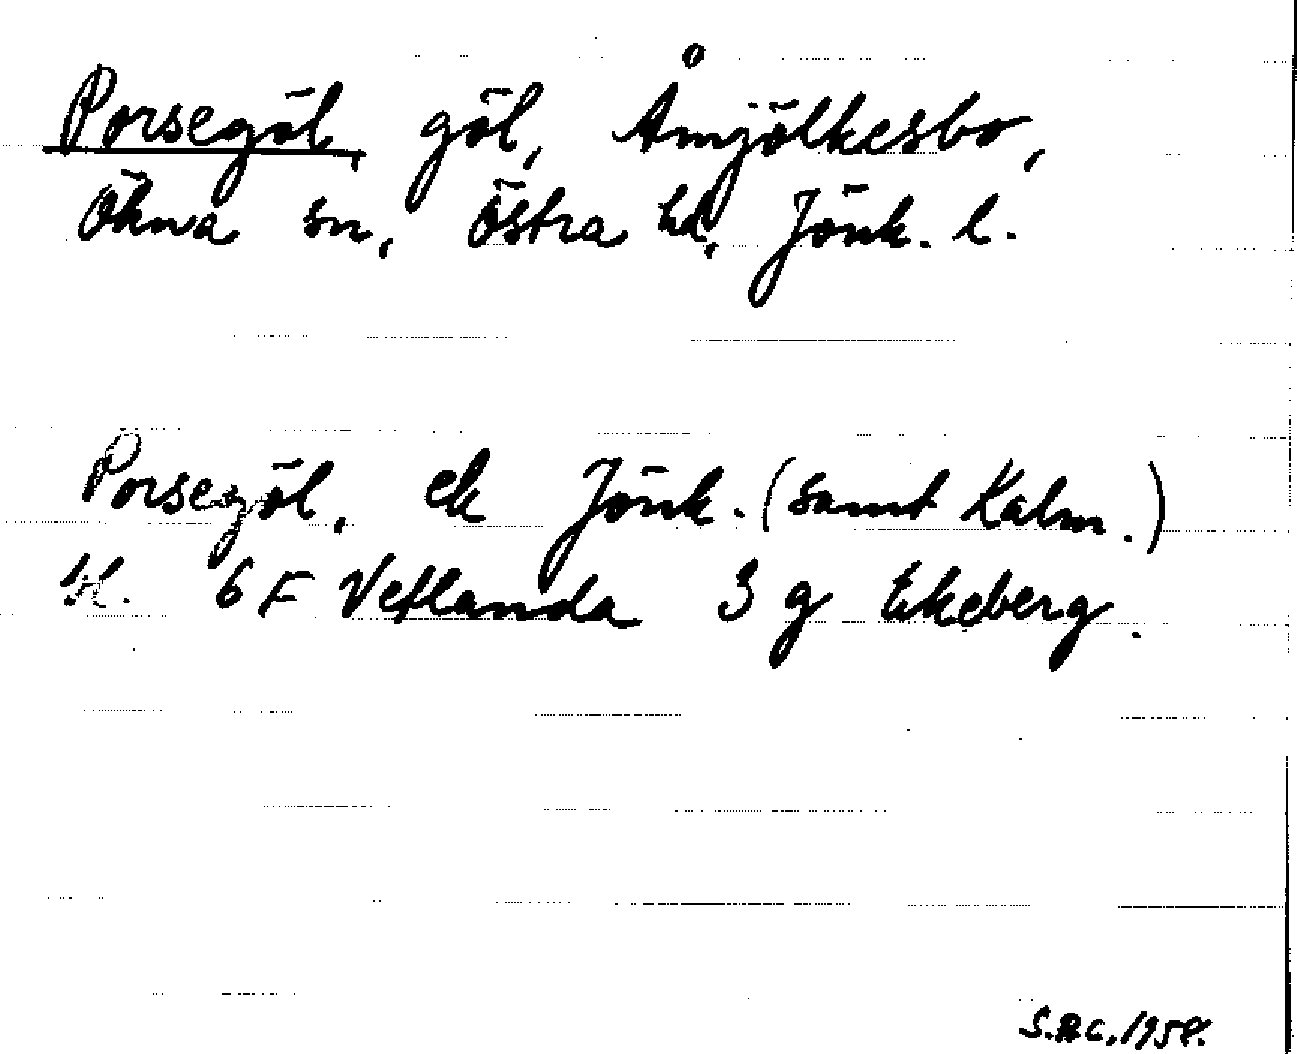 Porsegöl, göl, Åmjölkesbo,
Ökna sn, Östra hd, Jönk. l.
Porsegöl, ek Jönk. (samt Kalm.)
bl. 6 F Vetlanda 3 g Ekeberg.
1958.